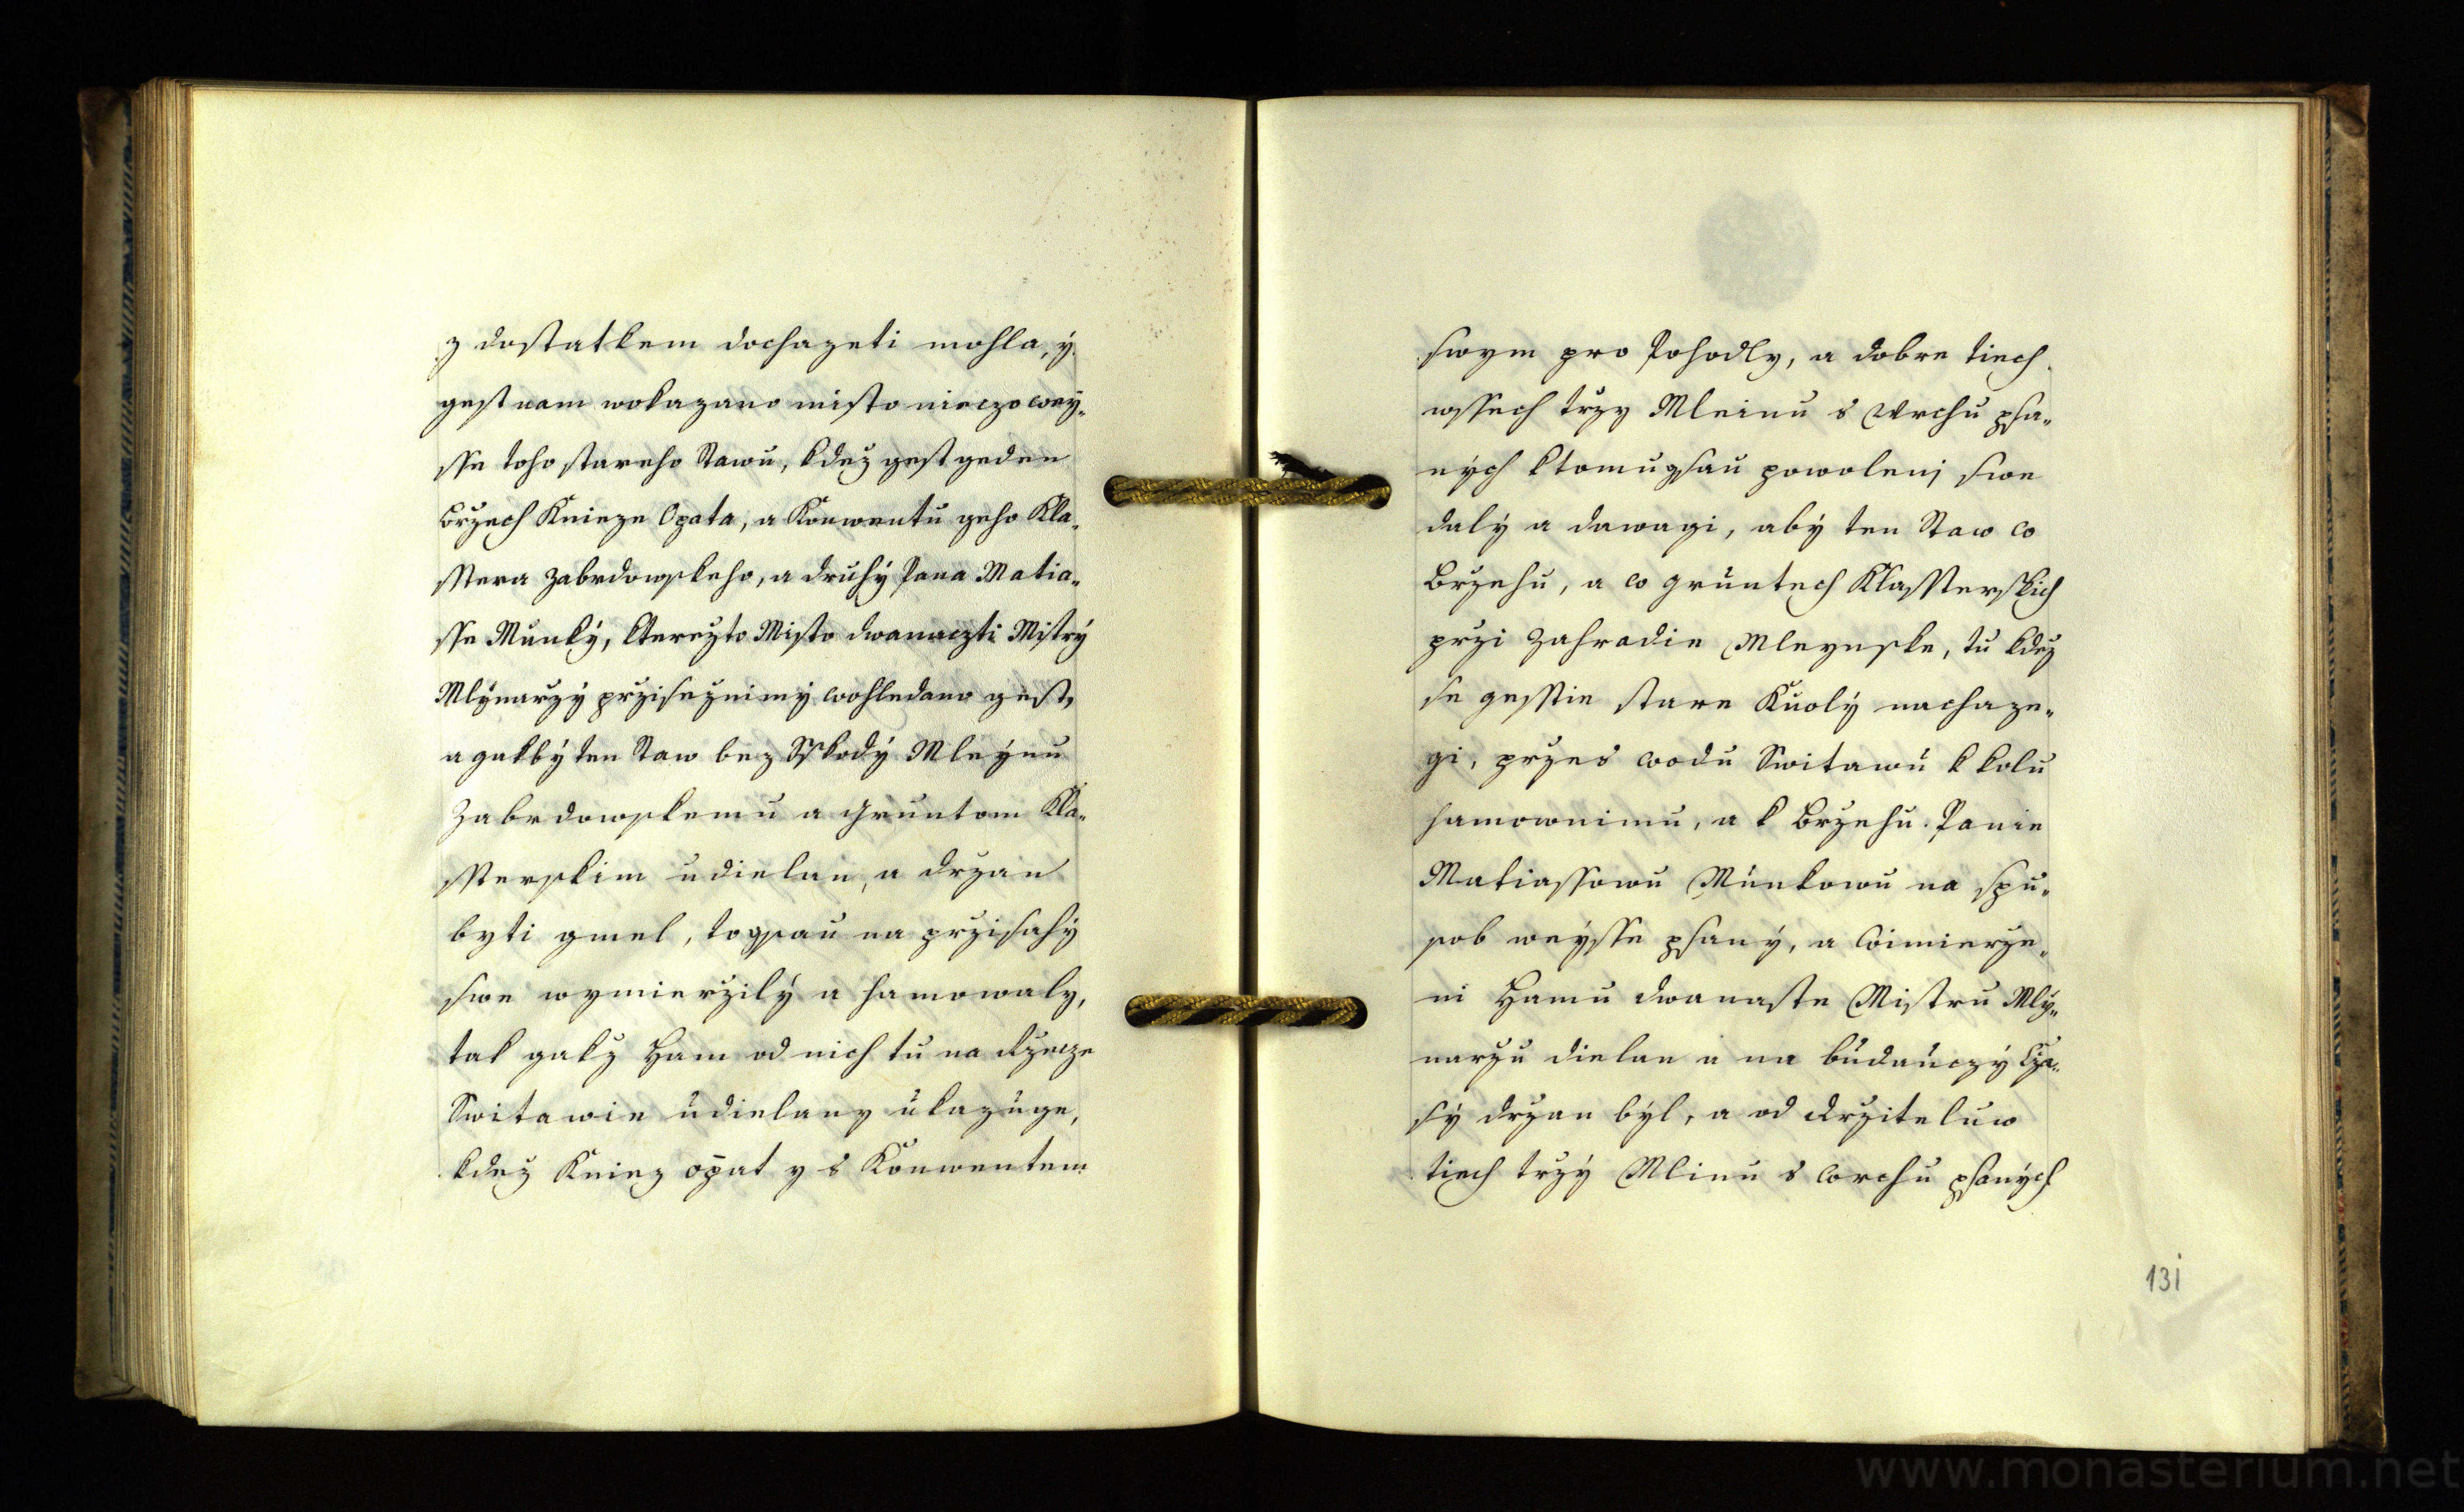 z dostatkem dochazeti mohla, ÿ
gest nam wokazano misto nieczo weÿ„
sse toho stareho Stawu, kdez gest geden
Brzech Knieze Opata, a Konwentu geho Kla„
sstera Zabrdowskeho, a druhÿ Pana Matia„
sse Munkÿ, kterezto Misto dwanaczti Mistrÿ
Mlÿnarzÿ przisezinimÿ wohledano gest,
a gakbÿ ten Staw bez Sskodÿ Mleÿnu
Zabrdowskemu a Gruntom Kla„
ssterskim udielan, a drzan
byti gmel, togsau na przisahÿ
swe wymierzilÿ a hamowaly,
tak gakz Ham od nich tu na Rzecze
Switawie udielany ukazuge,
kdez Kniez opat y s Konwentem
swym pro Pohodly, a dobre tiech
wssech trzy Mleinu s Wrchu psa„
nÿch ktomugsau powolenj swe
dalÿ a dawagi, abÿ ten Staw w
Brzehu, a w gruntech Klassterskich
przi Zahradie Mleynske, tu kdez
se gesstie stare Kuolÿ nachaze„
gi, przes wodu Switawu k kolu
hamownimu, a k Brzehu Panie
Matiassowu Munkowu na spu„
sob weÿsse psanÿ, a Wimierze„
ni Hamu dwanaste Mistru Mlÿ„
narzu dielan a na budauczÿ Cza„
sÿ drzan bÿl, a od Drziteluw
tiech trzÿ Mlinu s Wrchu psanÿch
131
www.monasterium.net